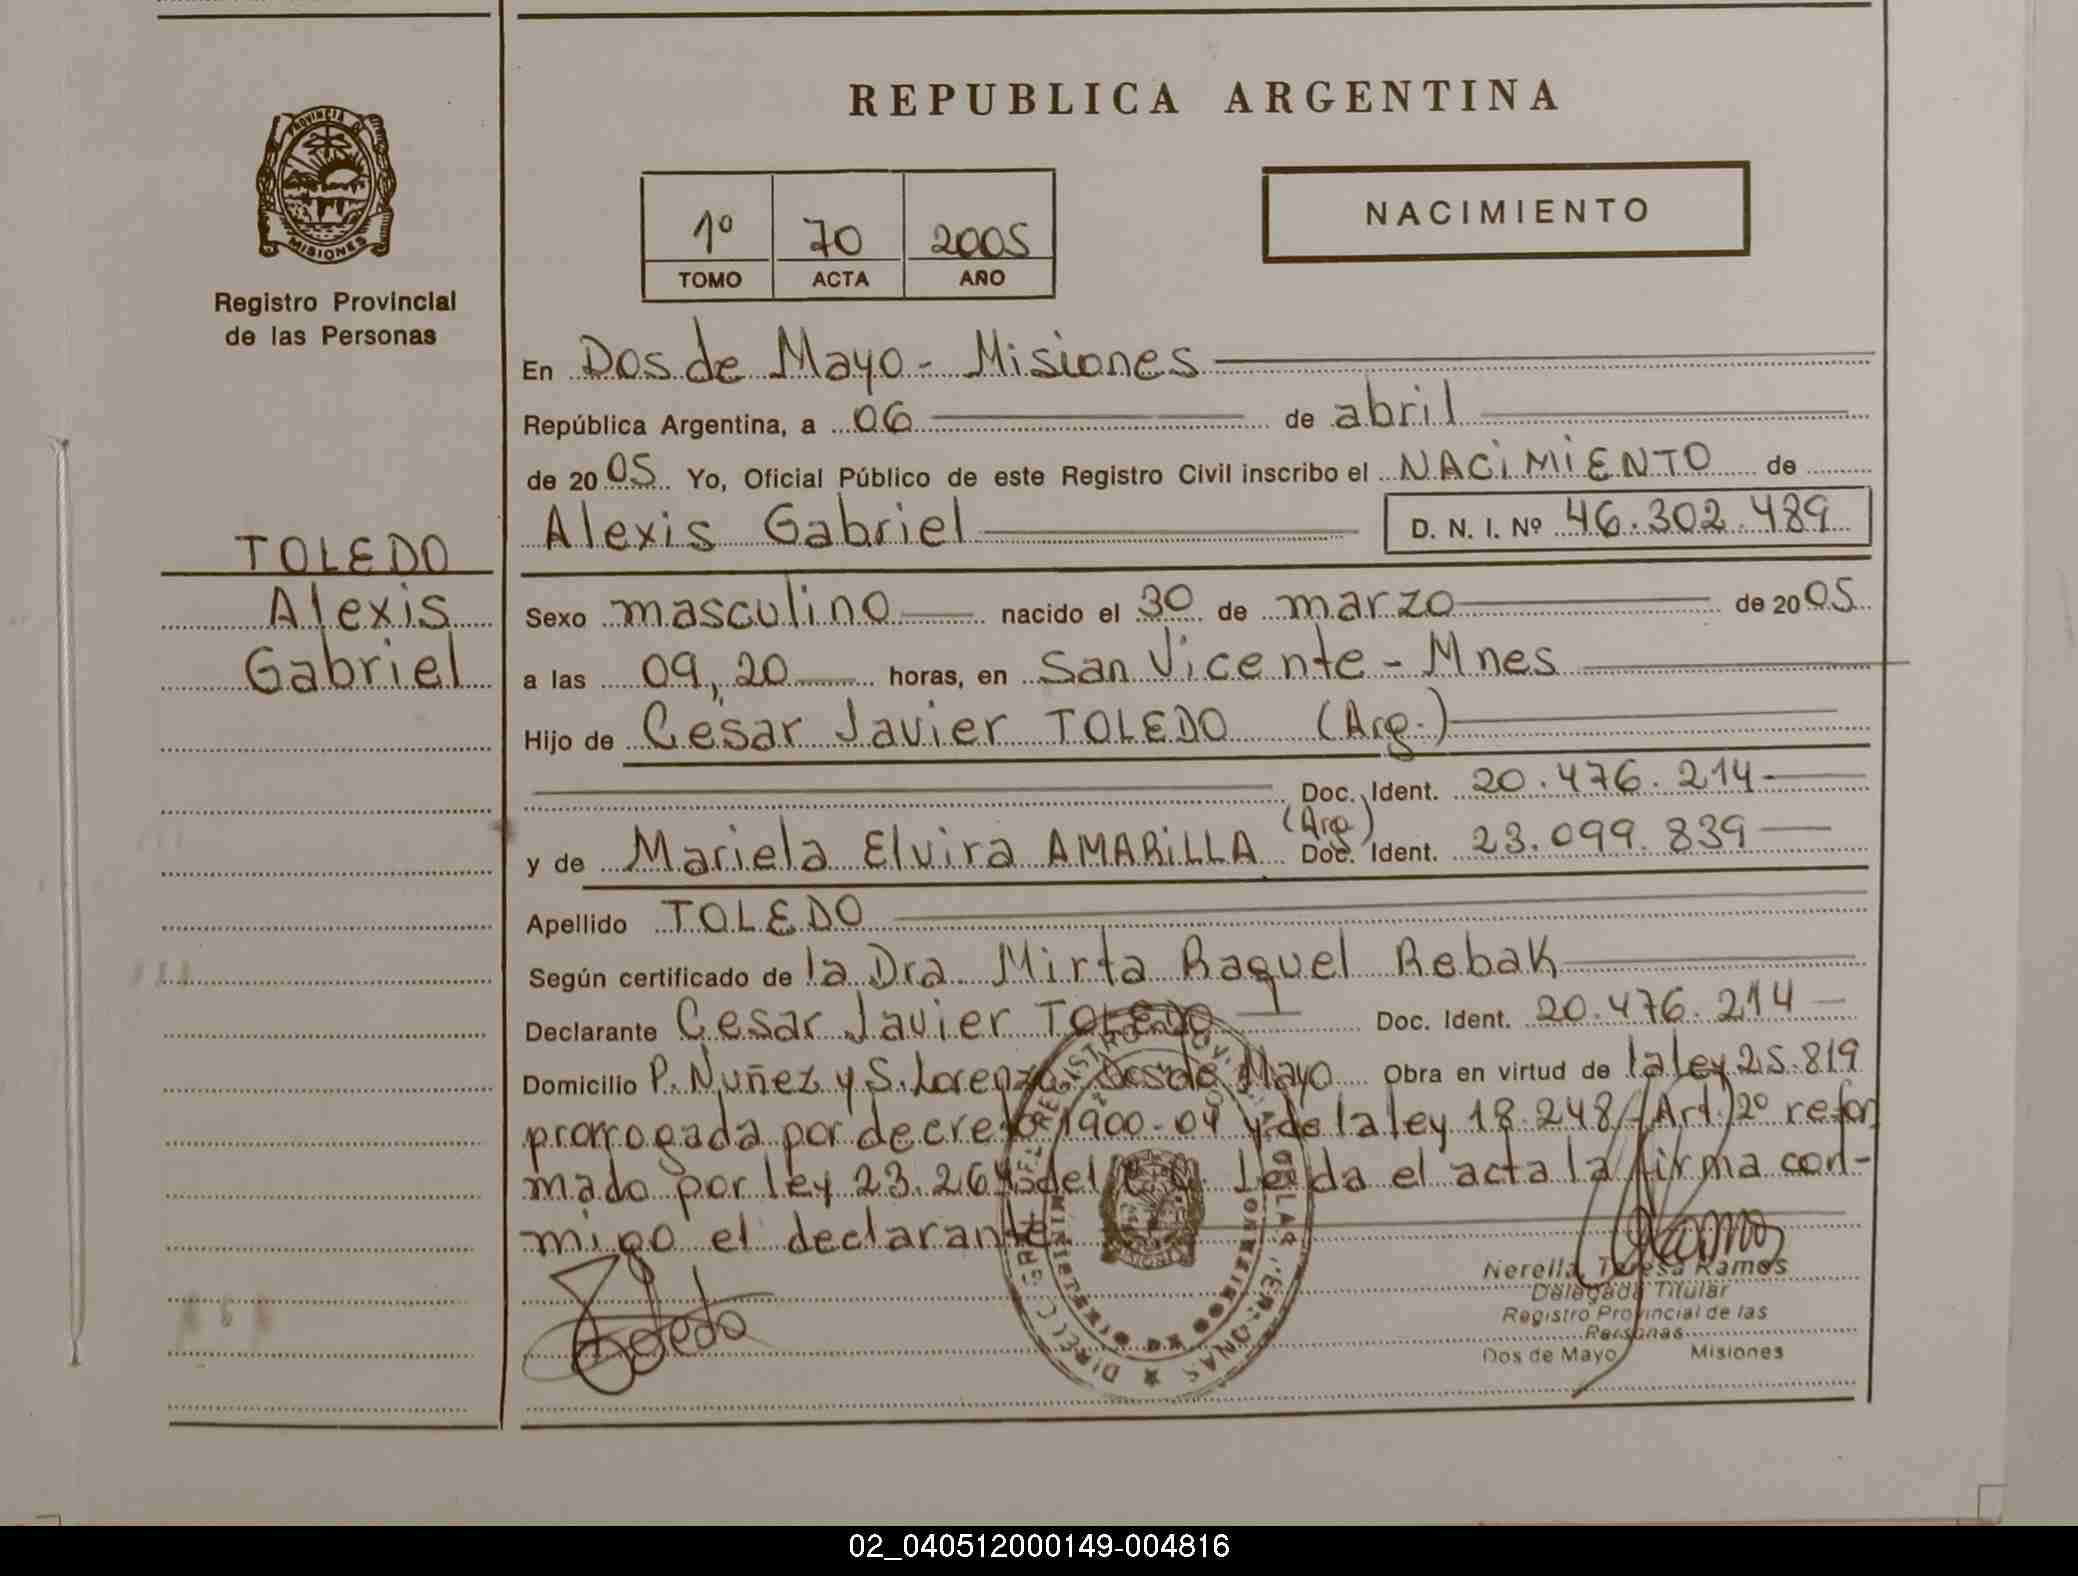 REPUBLICA ARGENTINA
PROVINCIA DE
MISIONES
Registro Provincial
de las Personas
1º 70 2005
TOMO ACTA AÑO
NACIMIENTO
TOLEDO
Alexis
Gabriel
En Dos de Mayo - Misiones
República Argentina, a 06 de abril
de 2005 Yo, Oficial Público de este Registro Civil inscribo el NACIMIENTO de
Alexis Gabriel D. N. I. Nº 46.302.489
Sexo masculino nacido el 30 de marzo de 2005
a las 09,20 horas, en San Vicente - Mnes
Hijo de Cesar Javier TOLEDO (Arg.)
Doc. Ident. 20.476.214
(Arg)
y de Mariela Elvira AMARILLA Doc. Ident. 23.099.839
Apellido TOLEDO
Según certificado de la Dra. Mirta Raquel Rebak
Declarante Cesar Javier TOLEDO Doc. Ident. 20.476.214
Domicilio P. Nuñez y S. Lorenzo Dos de Mayo Obra en virtud de la ley 25.819
prorrogada por decreto 1900-04 y de la ley 18.248 (Art.) 2º refor
mado por ley 23.264 del C.C. Leida el acta la firma con-
migo el declarante
Toledo
Nerella Teresa Ramos
Delegada Titular
Registro Provincial de las
Personas
Dos de Mayo Misiones
02_040512000149-004816